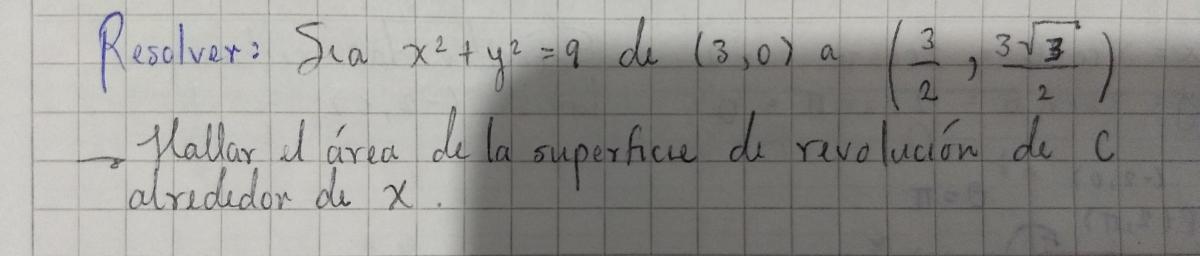 Resolver: Sea x² + y² = 9 de (3,0) a (3/2, 3√3/2)
→ Hallar el área de la superficie de revolución de C
alrededor de x.